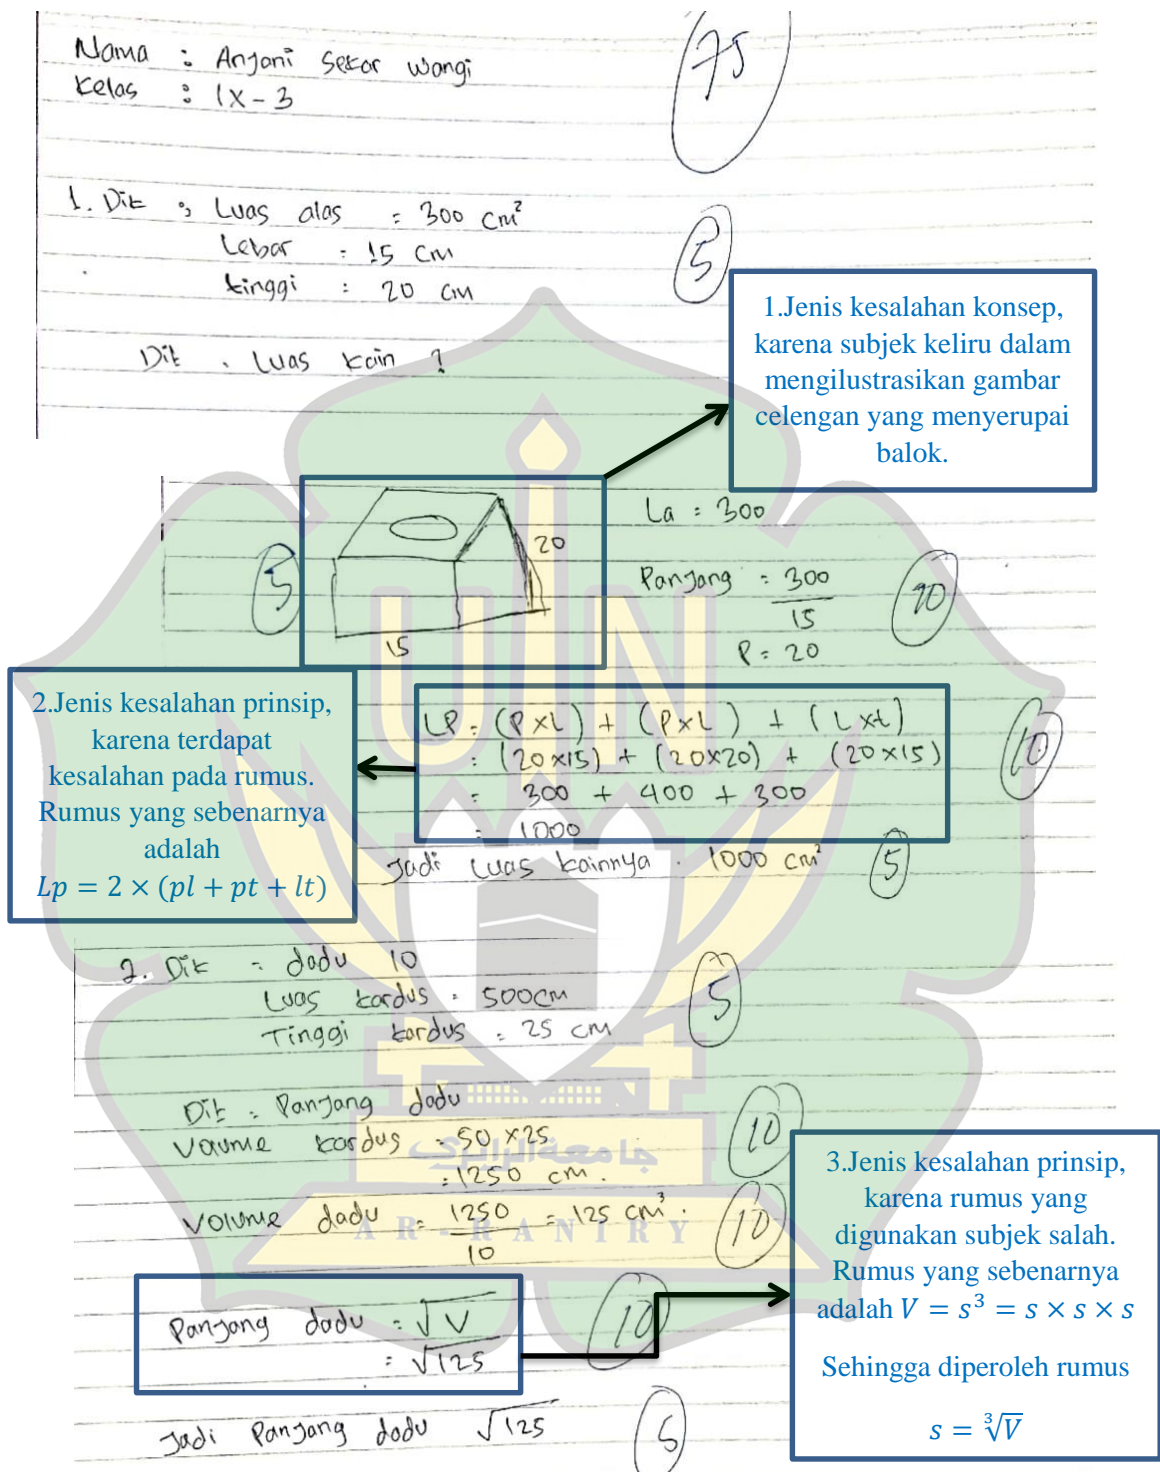 Nama : Anjani Sekar wangi
75
Kelas : IX - 3
1. Dik : Luas alas = 300 cm²
Lebar = 15 cm
5
tinggi : 20 cm
Dit : Luas kain ?
1.Jenis kesalahan konsep,
karena subjek keliru dalam
mengilustrasikan gambar
celengan yang menyerupai
balok.
La = 300
20
15
5
Panjang = 300
15
10
P = 20
2.Jenis kesalahan prinsip,
karena terdapat
kesalahan pada rumus.
Rumus yang sebenarnya
adalah
Lp = 2 × (pl + pt + lt)
LP = (P×L) + (P×L) + (L×t)
= (20×15) + (20×20) + (20×15)
= 300 + 400 + 300
= 1000
10
Jadi Luas kainnya = 1000 cm²
5
UIN
جامعة الرانري
AR-RANIRY
2. Dik = dadu 10
Luas kardus = 500cm
Tinggi kardus = 25 cm
5
Dit = Panjang dadu
Voume kardus = 50 ×25
= 1250 cm.
10
Volume dadu = 1250 = 125 cm³.
10
10
Panjang dadu = √V
= √125
10
3.Jenis kesalahan prinsip,
karena rumus yang
digunakan subjek salah.
Rumus yang sebenarnya
adalah V = s³ = s × s × s
Sehingga diperoleh rumus
s = ∛V
Jadi Panjang dadu √125
5